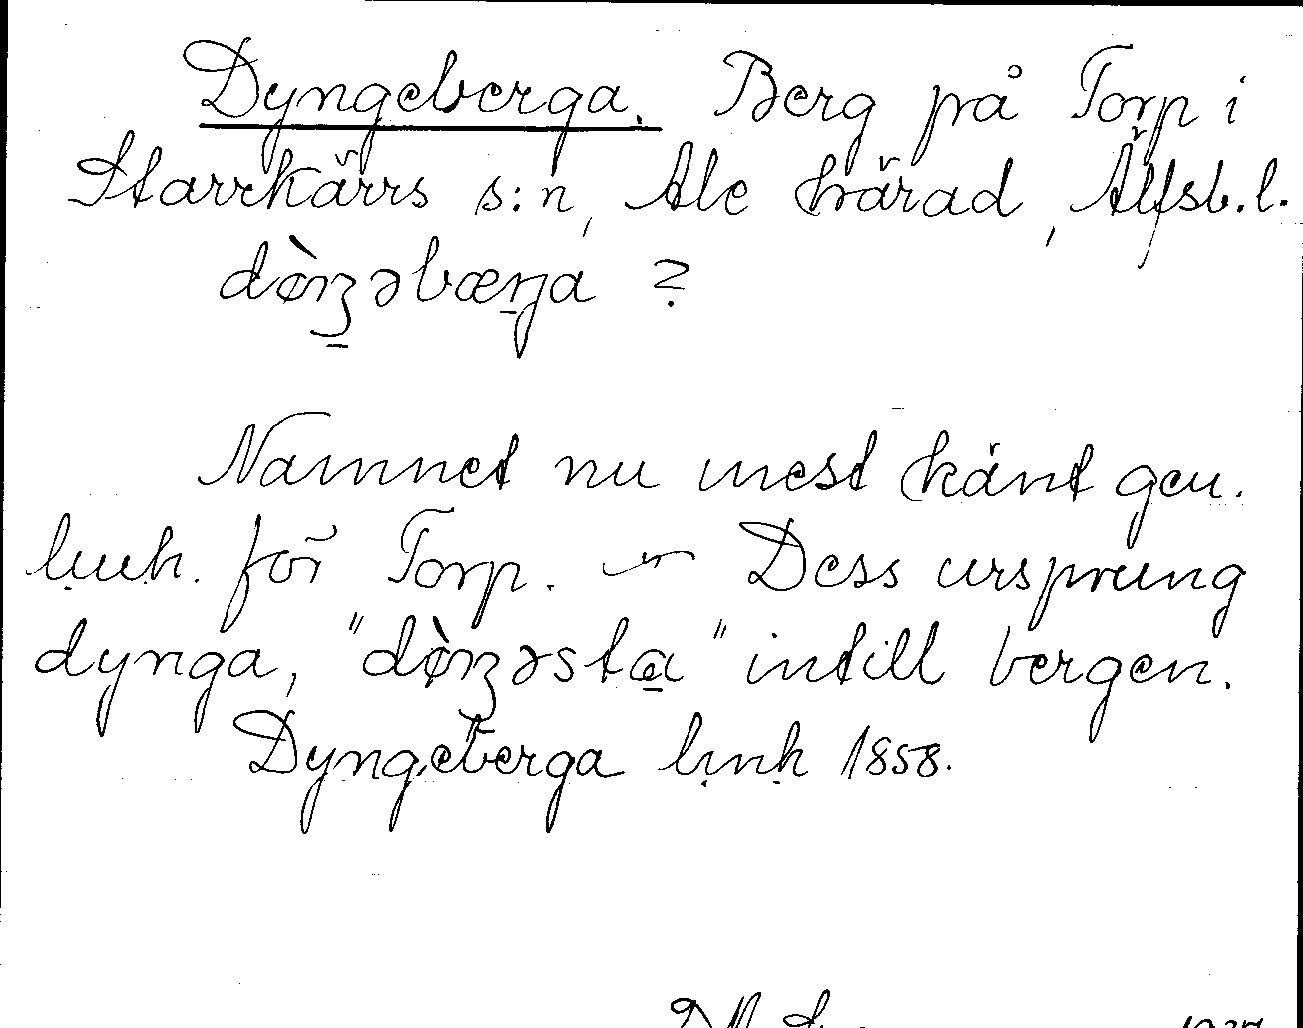 Dyngeberga. Berg på Torp i
Starrkärrs s:n, Ale härad, Älfsb. l.
dø̀nʒəbæŋa ?
Namnet nu mest känt gen.
lmk. för Torp. — Dess ursprung
dynga, "dø̀nʒəsta" intill bergen.
Dyngeberga lmk 1858.